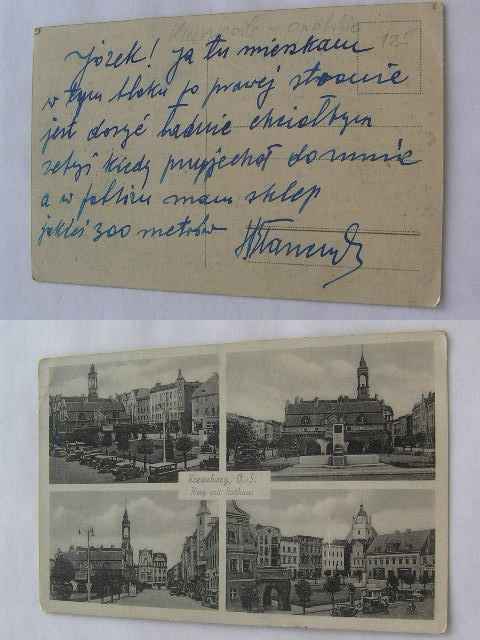 125
Józek! ja tu mieszkam
w tym bloku po prawej stronie
jest dosyć ładnie chciałbym
żebyś kiedy przyjechał do mnie
a w pobliżu mam sklep
jakieś 300 metrów
Kreuzburg, O.-S.
Ring mit Rathaus